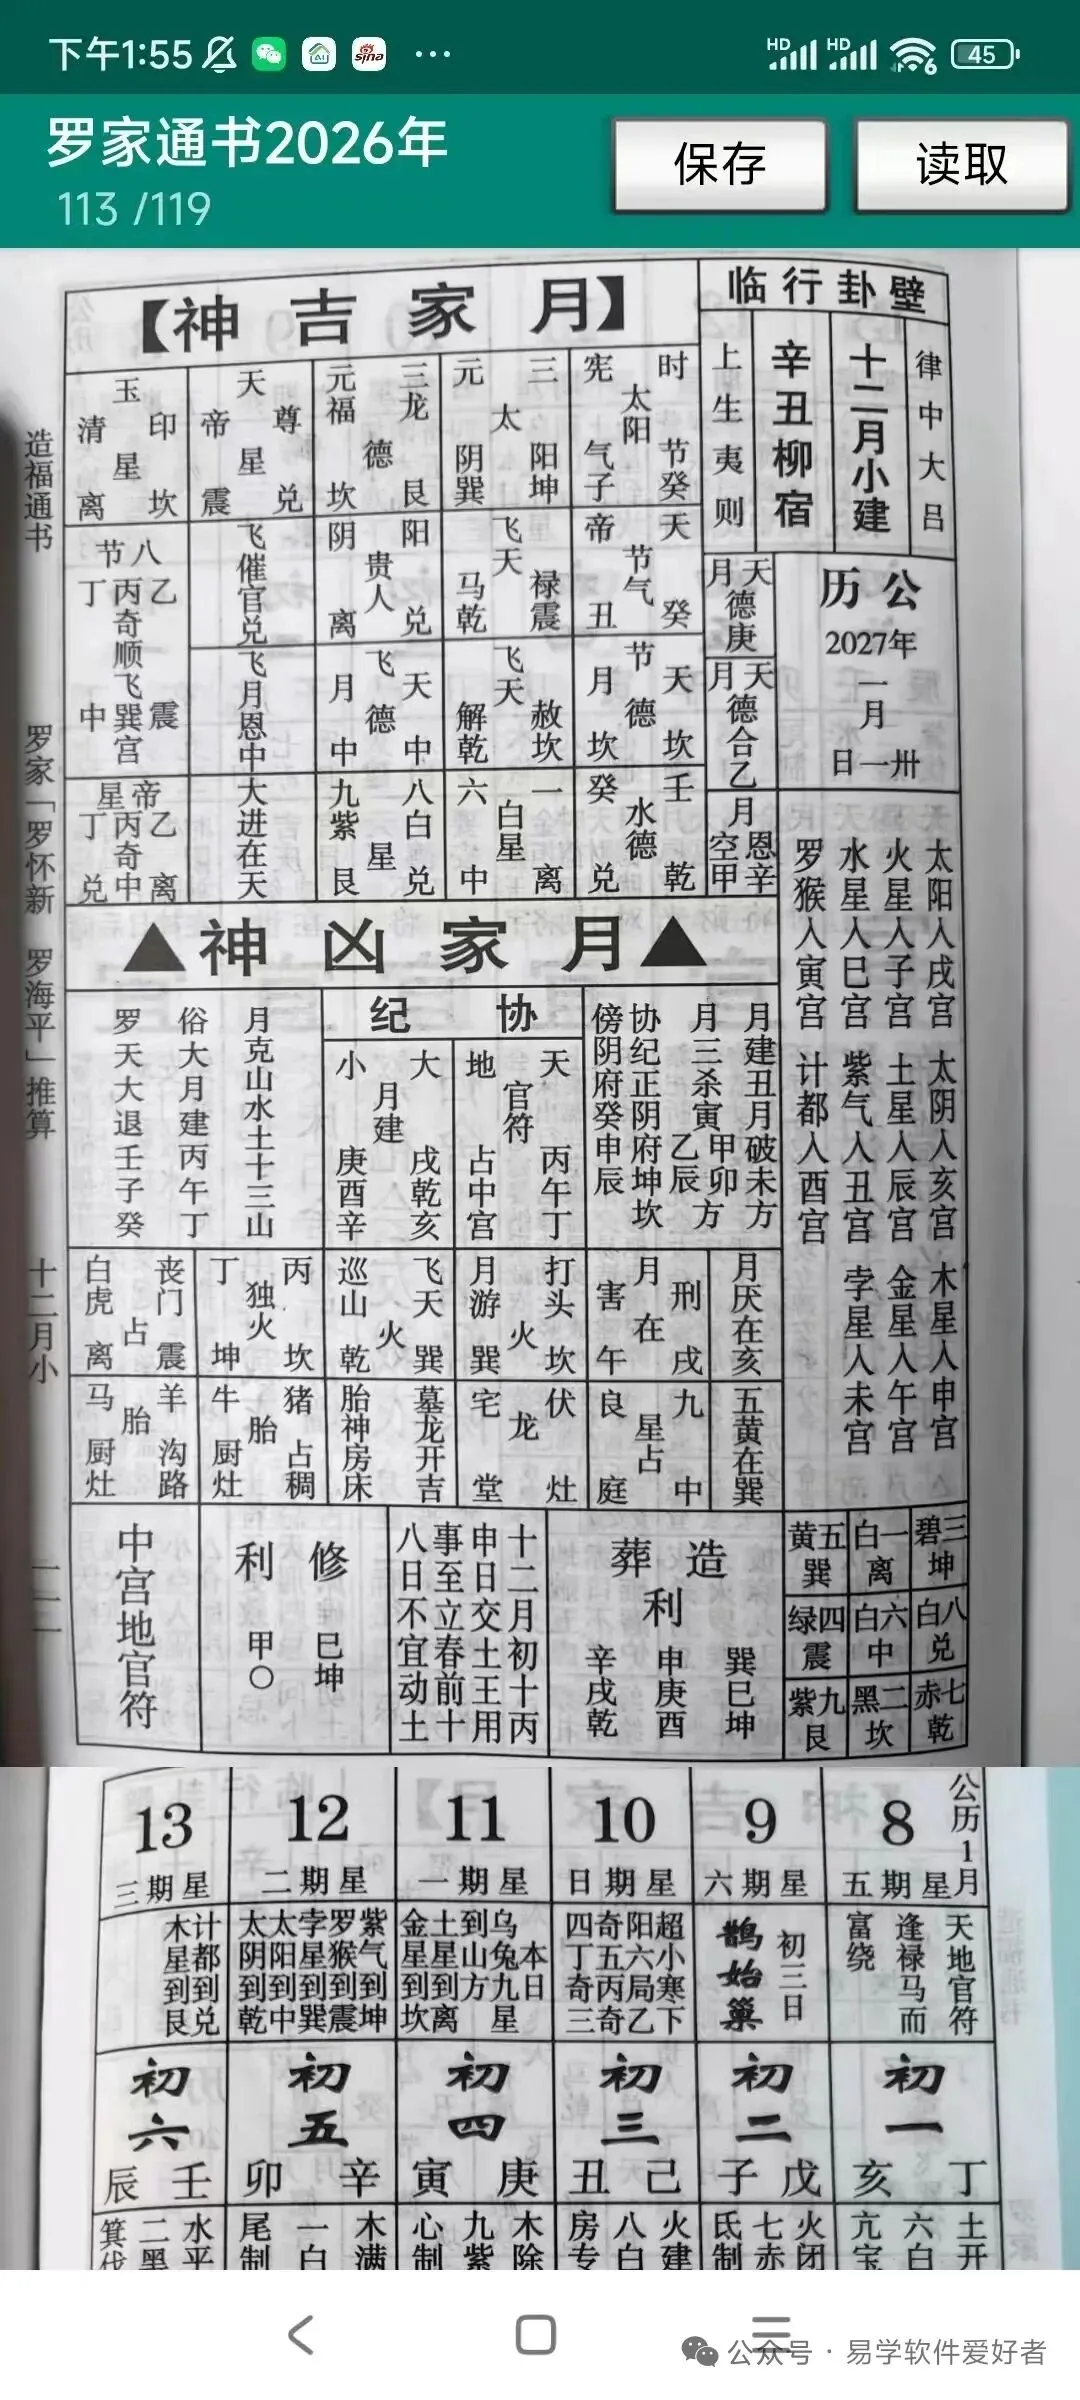 下午1:55
HD HD 6 45
罗家通书2026年
113 /119
保存
读取
临行卦壁
律中大吕
十二月小建
辛丑柳宿
上生夷则
公历
2027年
一月
卅一日
天月德庚
天月德合乙
月恩辛
月空甲
【神吉家月】
时宪太阳节气癸子
三元太阳坤太阴巽
三元龙福德艮坎
天帝尊星兑震
玉清印星坎离
天帝节气癸丑
飞天禄震马乾
阳阴贵人兑离
飞催官兑
八节乙丙丁奇顺飞震巽中宫
天月节德坎坎
飞天赦坎解乾
飞天月德中中
飞月恩中
壬癸水德乾兑
一六白星离中
八白九紫星兑艮
大进在天
帝星乙丙丁奇离中兑
太阳人戌宫 太阴人亥宫 木星人申宫
火星人子宫 土星人辰宫 金星人午宫
水星人巳宫 紫气人丑宫 孛星人未宫
罗猴人寅宫 计都人酉宫
▲神凶家月▲
月建丑月破未方
月三杀寅甲卯乙辰方
协纪正阴府坤坎
傍阴府癸申辰
协纪
天地官符丙午丁占中宫
大小月建戌乾亥庚酉辛
月克山水土十三山
俗大月建丙午丁
罗天大退壬子癸
月厌在亥
月刑害在戌午
打头火坎月游火巽
飞天火巽巡山火乾
丙丁独火坎坤
丧门占震白虎占离
五黄在巽
九良星占中庭
伏龙灶宅龙堂
墓龙开吉
胎神房床
猪胎占稠牛胎厨灶
羊胎沟路马胎厨灶
三碧坤 一白离 五黄巽
八白兑 六白中 四绿震
七赤乾 二黑坎 九紫艮
造葬利
巽巳坤
申庚酉
辛戌乾
十二月初十丙
申日交土王用
事至立春前十
八日不宜动土
修利
巳坤
甲〇
中宫地官符
造福通书
罗家「罗怀新 罗海平」推算
十二月小
一一二
公历1月
8 9 10 11 12 13
星期五 星期六 星期日 星期一 星期二 星期三
天地官符
逢禄马而
富绕
初三日
鹊始巢
超小寒下
阳六局乙
奇五丙奇
四丁奇三
本日
乌兔九星
到山方
土星到离
金星到坎
紫气到坤
罗猴到震
孛星到巽
太阳到中
太阴到乾
计都到兑
木星到艮
初一 初二 初三 初四 初五 初六
丁亥 戊子 己丑 庚寅 辛卯 壬辰
土开 火闭 火建 木除 木满 水平
六白 七赤 八白 九紫 一白 二黑
亢宝 氐制 房专 心制 尾制 箕伐
公众号 · 易学软件爱好者